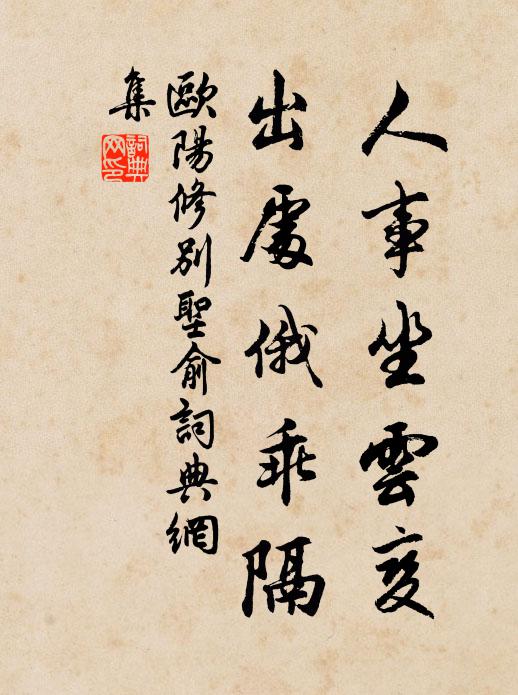 人事坐雲变
出處俄乖隔
歐陽修別聖俞詞典網
集
詞典网印